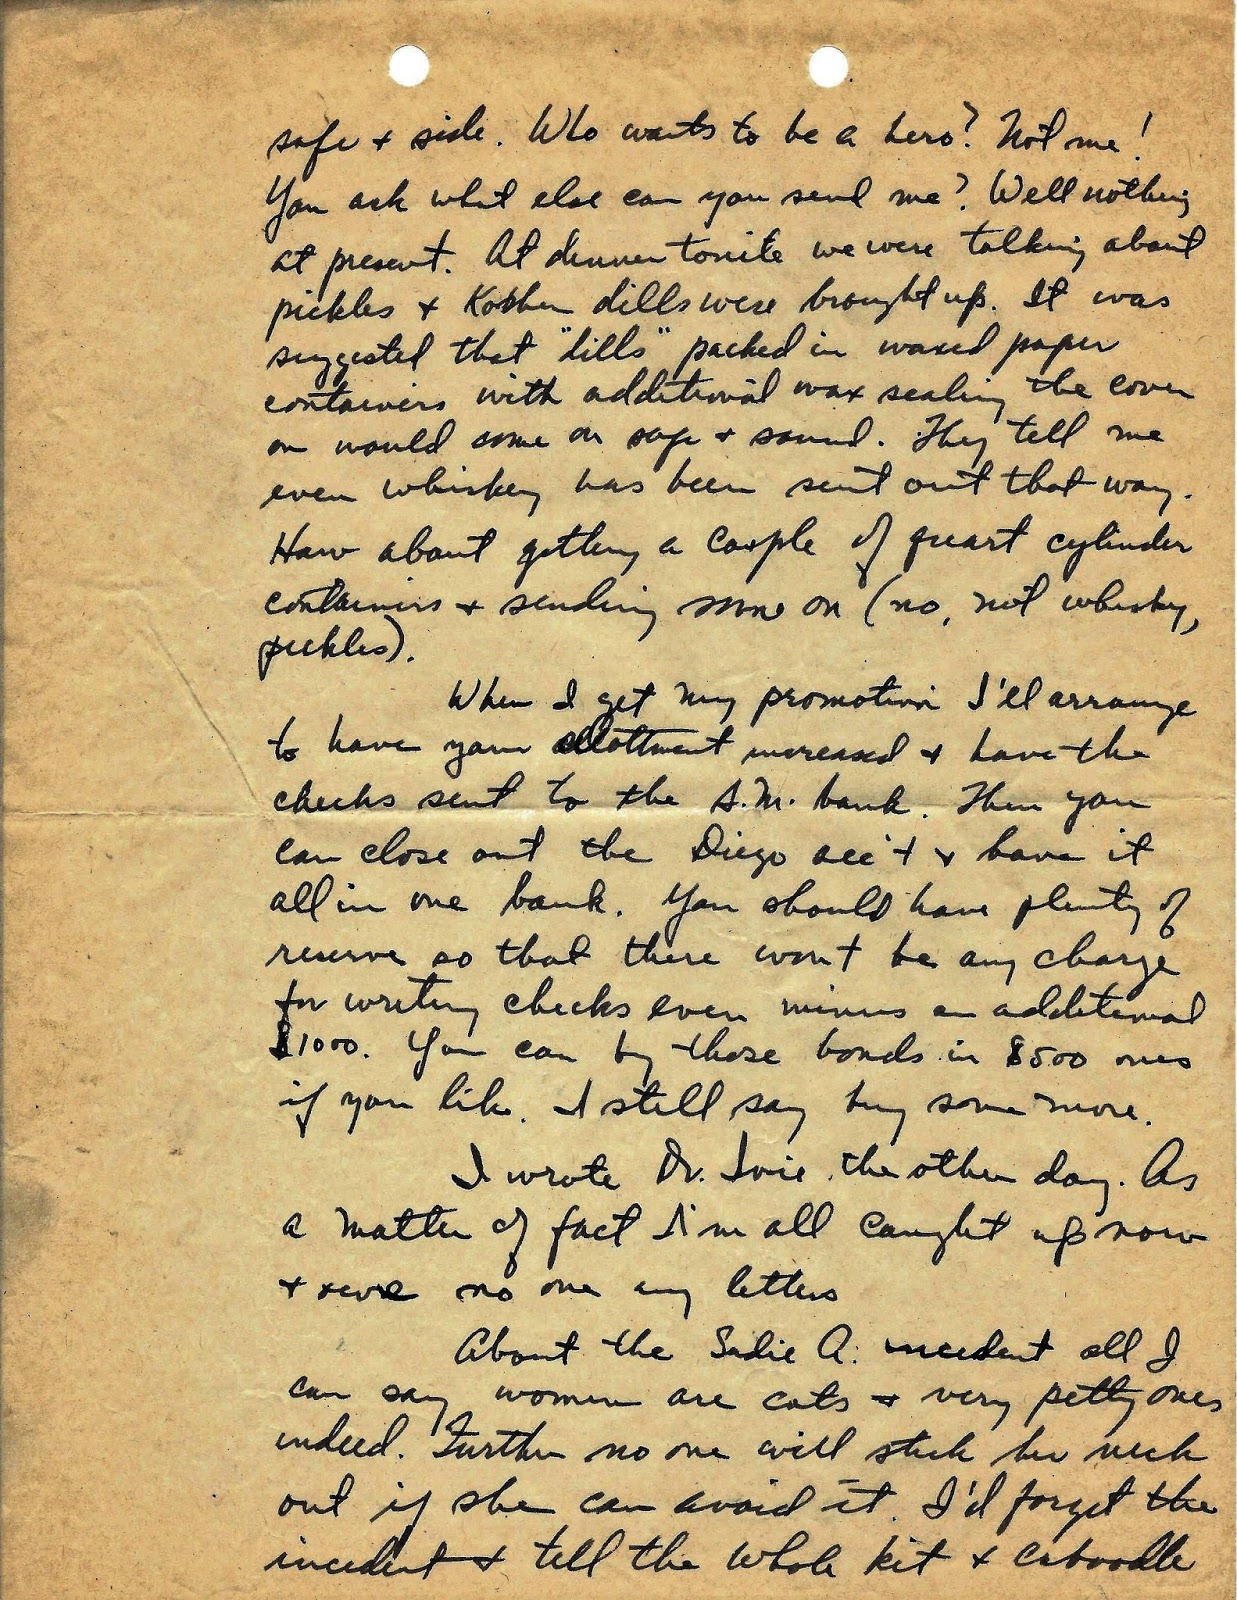 safe + side. Who wants to be a hero? Not me!
You ask what else can you send me? Well nothing
at present. At dinner tonite we were talking about
pickles + Kosher dills were brought up. It was
suggested that "dills" packed in waxed paper
containers with additional wax sealing the cover
on would come on safe + sound. They tell me
even whiskey has been sent out that way.
How about getting a couple of quart cylinder
containers + sending some on (no, not whisky,
pickles).
When I get my promotion I'll arrange
to have your allottment increased + have the
checks sent to the S.M. bank. Then you
can close out the Diego acc't + have it
all in one bank. You should have plenty of
reserve so that there won't be any charge
for writing checks even minus an additional
$1000. You can by those bonds in $500 ones
if you like. I still say buy some more.
I wrote Dr. the other day. As
a matter of fact I'm all caught up now
+ owe no one any letters
About the Sadie A. incident all I
can say women are cats + very petty ones
indeed. Further no one will stick her neck
out if she can avoid it. I'd forget the
incident + tell the whole kit + caboodle